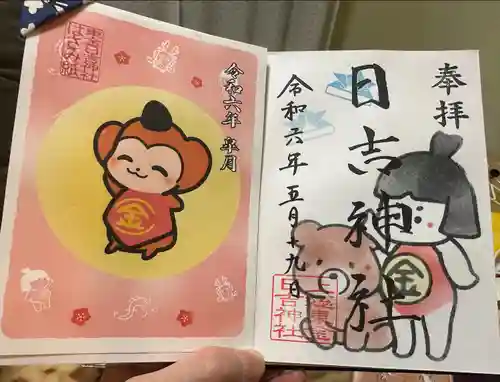 奉拝
日吉神社
令和六年五月十九日
金
日吉神社
令和六年 皐月
金
はさみ紙